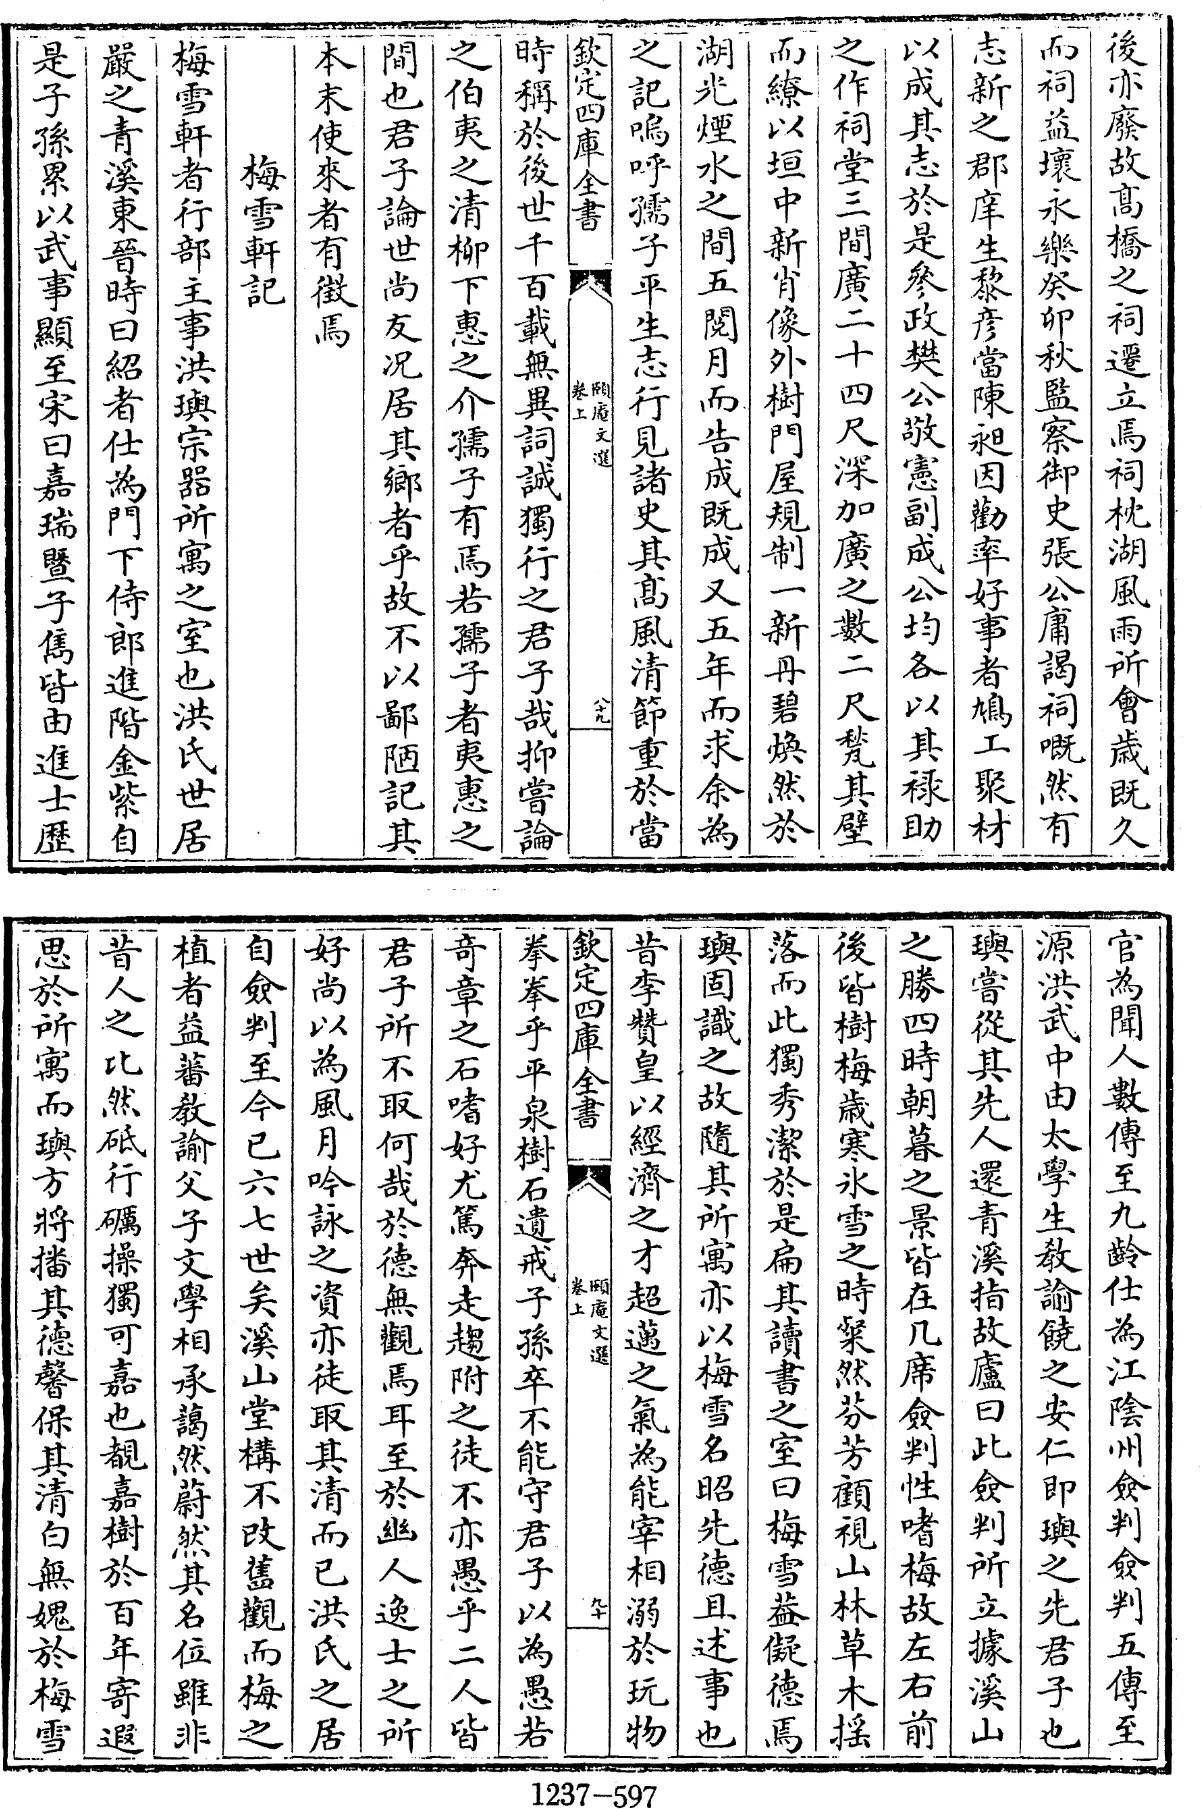 後亦廢故髙橋之祠遷立焉祠枕湖風雨所會歳既久
而祠益壞永樂癸卯秋監察御史張公庸謁祠嘅然有
志新之郡庠生黎彦當陳昶因勸率好事者鳩工聚材
以成其志於是參政樊公敬憲副成公均各以其祿助
之作祠堂三間廣二十四尺深加廣之數二尺甃其壁
而繚以垣中新肖像外樹門屋規制一新丹碧煥然於
湖光煙水之間五閱月而告成既成又五年而求余為
之記嗚呼孺子平生志行見諸史其髙風清節重於當
欽定四庫全書
頤庵文選
卷上
八十九
時稱於後世千百載無異詞誠獨行之君子哉抑嘗論
之伯夷之清柳下惠之介孺子有焉若孺子者夷惠之
間也君子論世尚友况居其鄉者乎故不以鄙陋記其
本末使來者有徴焉
梅雪軒記
梅雪軒者行部主事洪璵宗器所寓之室也洪氏世居
嚴之青溪東晉時曰紹者仕為門下侍郎進階金紫自
是子孫累以武事顯至宋曰嘉瑞暨子雋皆由進士歷
官為聞人數傳至九齡仕為江陰州僉判僉判五傳至
源洪武中由太學生教諭饒之安仁即璵之先君子也
璵嘗從其先人還青溪指故廬曰此僉判所立據溪山
之勝四時朝暮之景皆在几席僉判性嗜梅故左右前
後皆樹梅歳寒氷雪之時粲然芬芳顧視山林草木揺
落而此獨秀潔於是扁其讀書之室曰梅雪葢儗德焉
璵固識之故隨其所寓亦以梅雪名昭先德且述事也
昔李贊皇以經濟之才超邁之氣為能宰相溺於玩物
欽定四庫全書
頤庵文選
卷上
九十
拳拳乎平泉樹石遺戒子孫卒不能守君子以為愚若
竒章之石嗜好尤篤奔走趨附之徒不亦愚乎二人皆
君子所不取何哉於德無觀焉耳至於幽人逸士之所
好尚以為風月吟詠之資亦徒取其清而已洪氏之居
自僉判至今已六七世矣溪山堂構不改舊觀而梅之
植者益蕃教諭父子文學相承藹然蔚然其名位雖非
昔人之比然砥行礪操獨可嘉也覩嘉樹於百年寄遐
思於所寓而璵方將播其德馨保其清白無媿於梅雪
1237-597